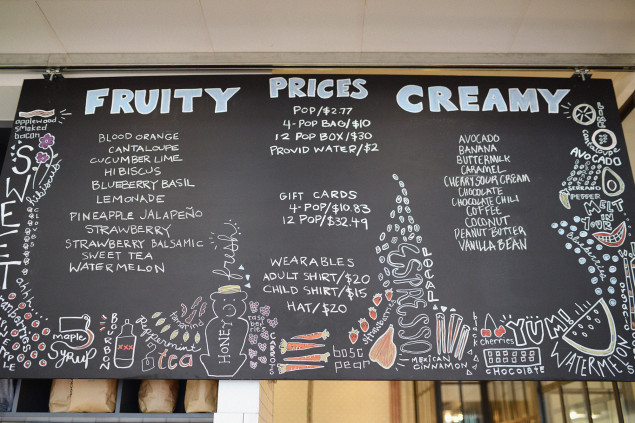 FRUITY
BLOOD ORANGE
CANTALOUPE
CUCUMBER LIME
HIBISCUS
BLUEBERRY BASIL
LEMONADE
PINEAPPLE JALAPEÑO
STRAWBERRY
STRAWBERRY BALSAMIC
SWEET TEA
WATERMELON
PRICES
POP/$2.77
4-POP BAG/$10
12 POP BOX/$30
PROVID WATER/$2
GIFT CARDS
4 POP/$10.83
12 POP/$32.49
WEARABLES
ADULT SHIRT/$20
CHILD SHIRT/$15
HAT/$20
CREAMY
AVOCADO
BANANA
BUTTERMILK
CARAMEL
CHERRY SOUR CREAM
CHOCOLATE
CHOCOLATE CHILI
COFFEE
COCONUT
PEANUT BUTTER
VANILLA BEAN
applewood
smoked
bacon
SWEET
hibiscus
maple
syrup
BOURBON
XXX
Peppermint
tea
fresh!
HONEY
CARROTS
bosc
pear
strawberries
ESPRESSO
LOCAL
MEXICAN
CINNAMON
CHERRIES
CHOCOLATE
YUM!
WATERMELON
cantaloupe
AVOCADO
SERRANO
PEPPER
MELT
IN YOUR